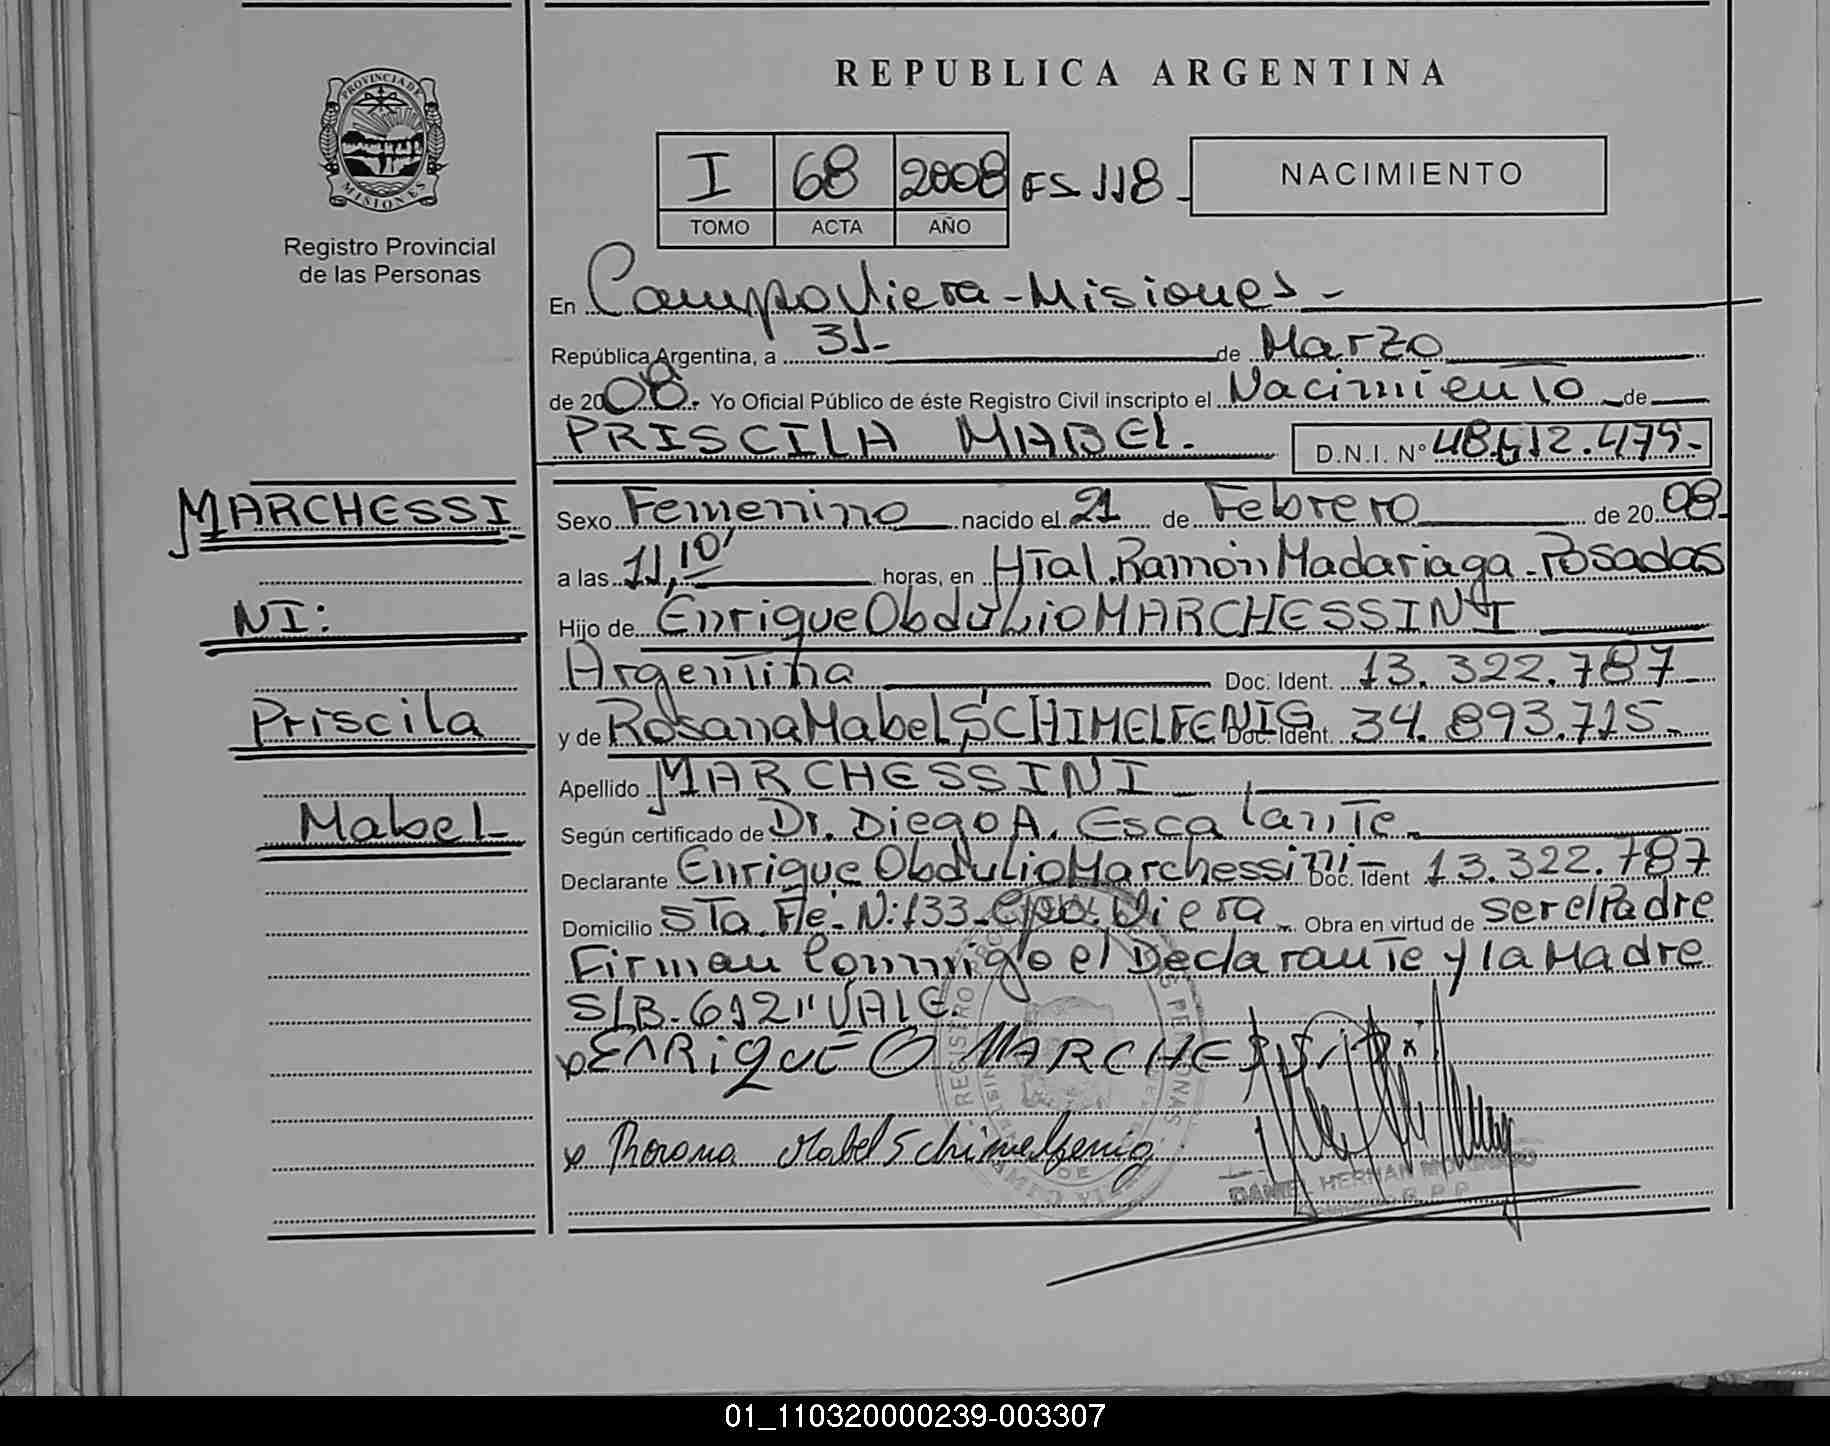 REPUBLICA ARGENTINA
PROVINCIA DE
MISIONES
Registro Provincial
de las Personas
I 68 2008 FS 118-
TOMO ACTA AÑO
NACIMIENTO
En Campo Viera - Misiones -
República Argentina, a 31- de Marzo
de 2008. Yo Oficial Público de éste Registro Civil inscripto el Nacimiento de
PRISCILA MABEL. D.N.I. Nº 48.612.475-
MARCHESSI
NI:
Priscila
Mabel
Sexo Femenino nacido el 21 de Febrero de 2008-
a las 11,10' horas, en HTal. Ramón Madariaga - Posadas
Hijo de Enrique Obdulio MARCHESSINI
Argentina Doc. Ident. 13.322.787-
y de Rosana Mabel SCHIMELFENIG Doc. Ident. 34.893.715-
Apellido MARCHESSINI
Según certificado de Dr. Diego A. Escalante
Declarante Enrique Obdulio Marchessini - Doc. Ident 13.322.787
Domicilio STa. Fé - N: 133 - Cpo. Viera - Obra en virtud de ser el Padre
Firman Conmigo el Declarante y la Madre
S/B. 612 "VALE.
x ENRIQUE O MARCHESSINI
x Rosana Mabel Schimelfenig
DANIEL HERNAN
01_110320000239-003307